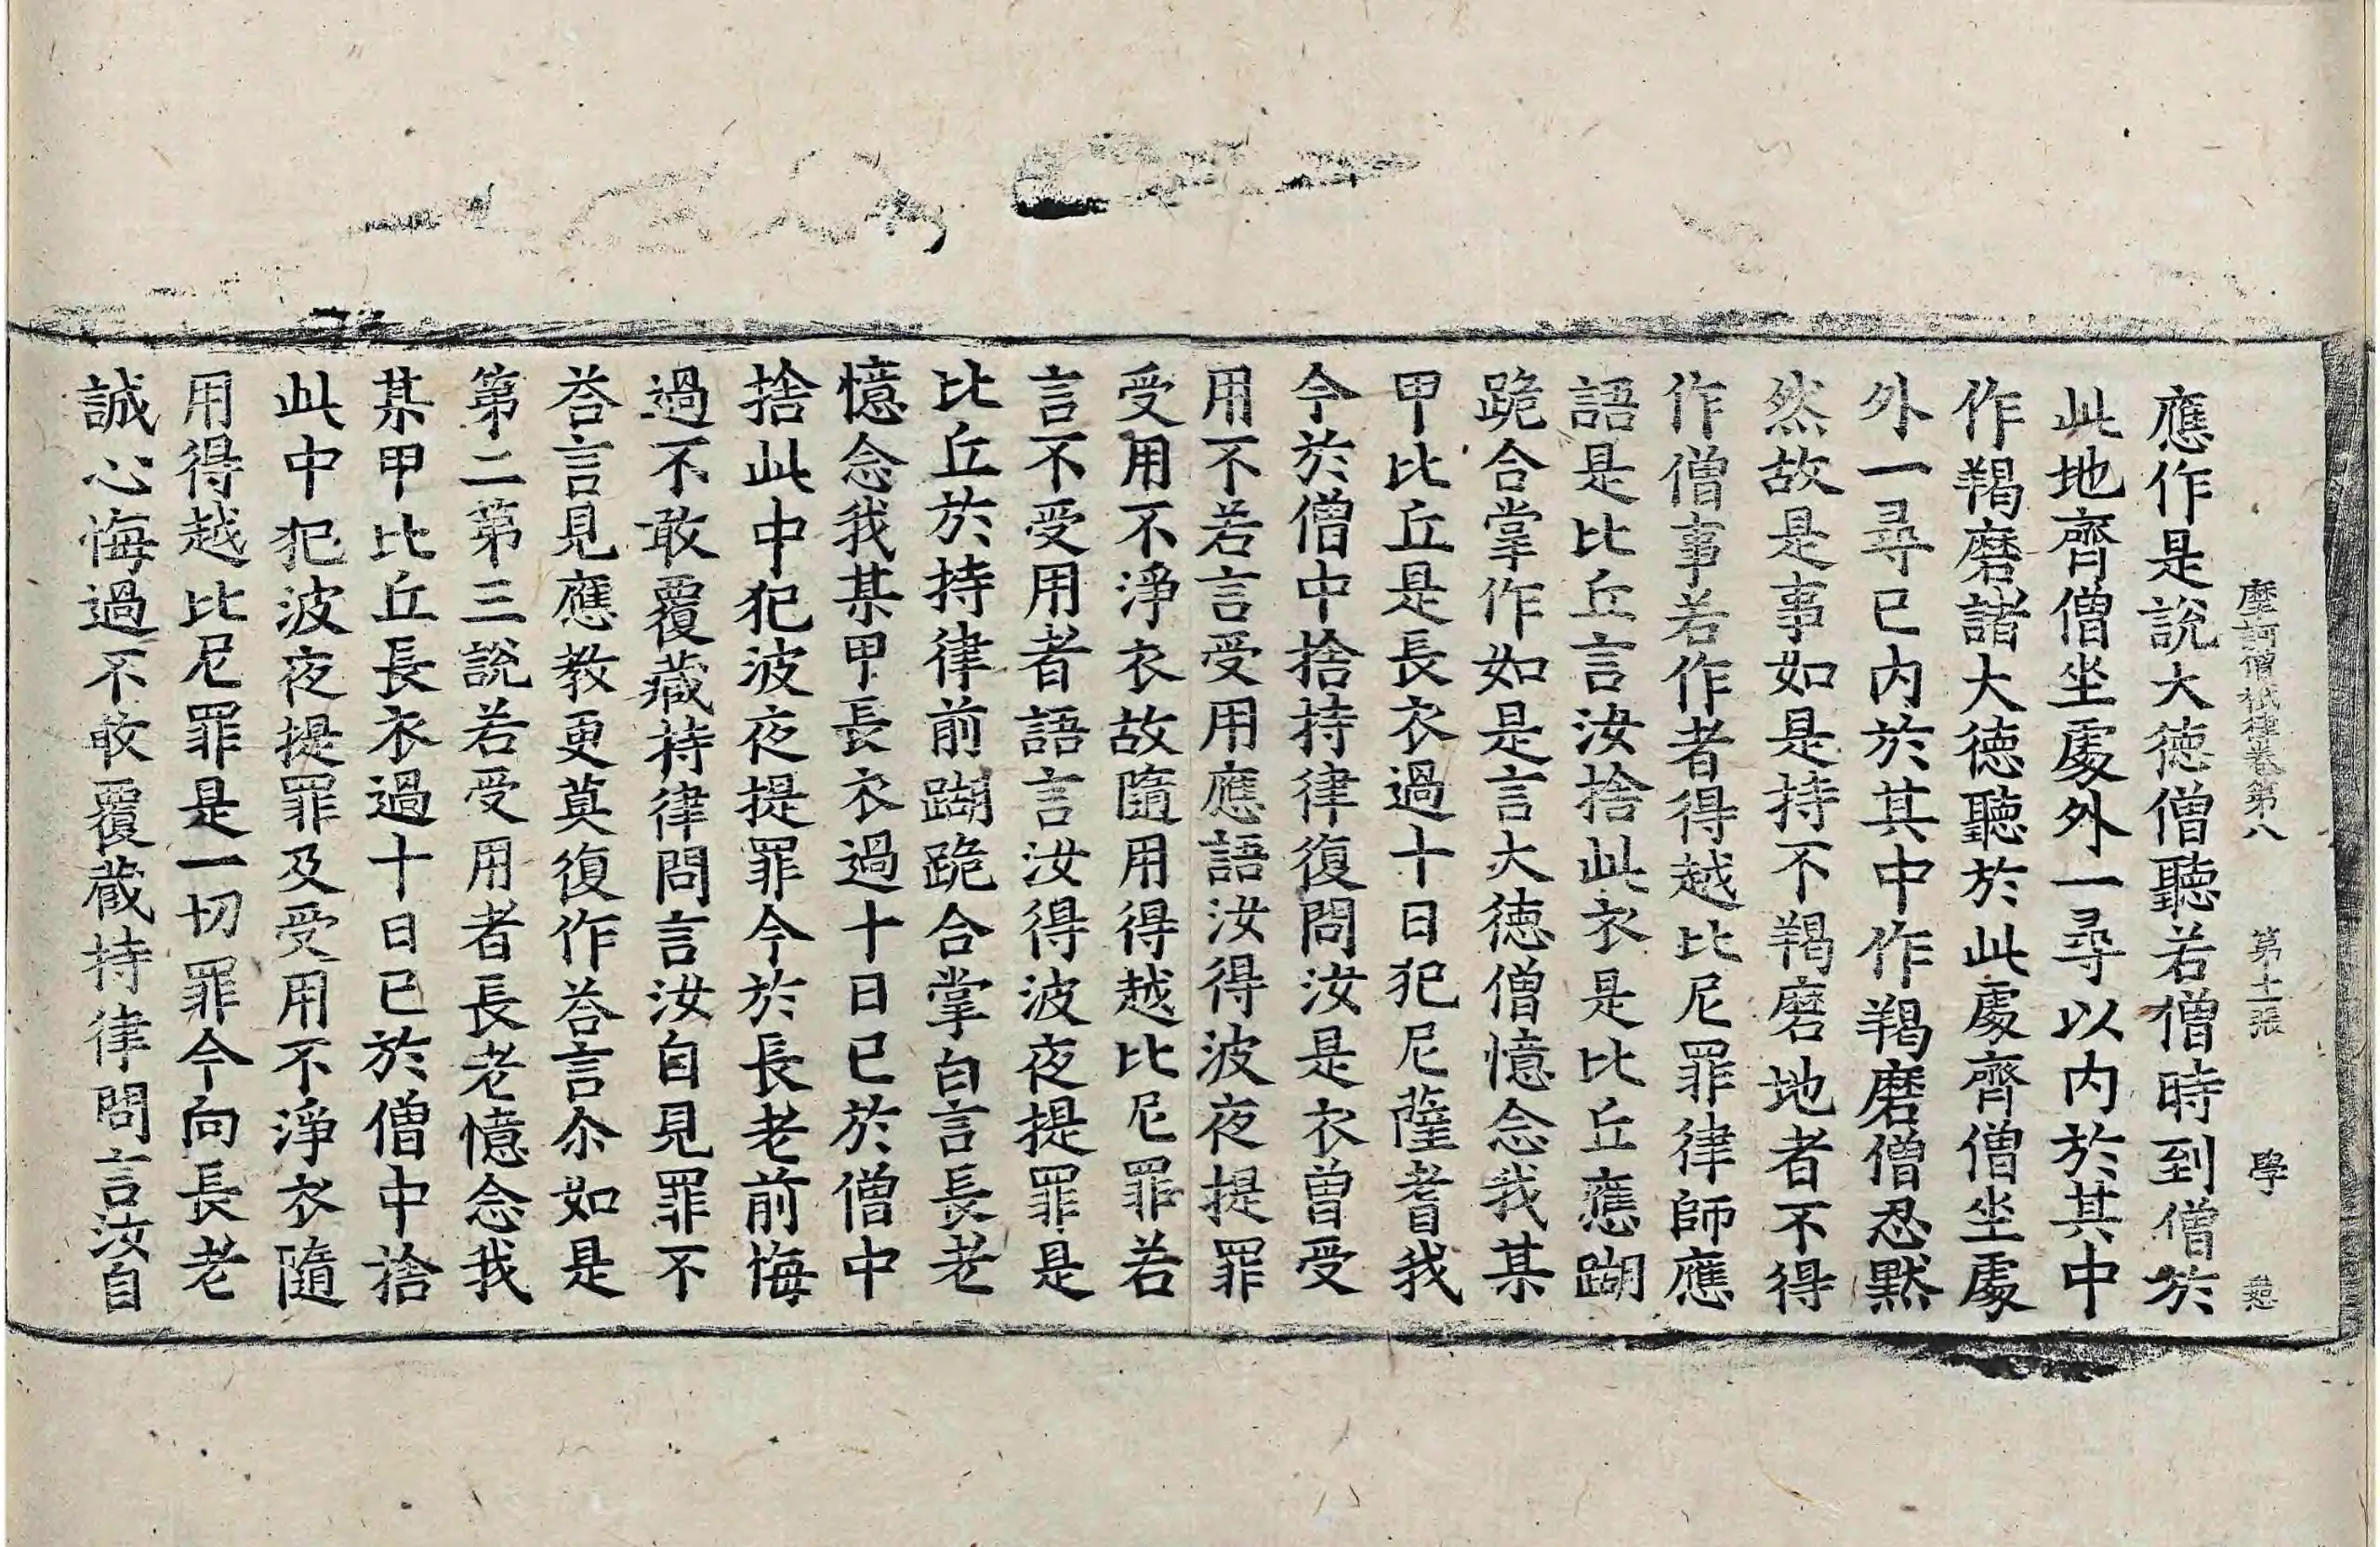 摩訶僧祇律卷第八 第十二張 學
應作是說大德僧聽若僧時到僧於
此地齊僧坐處外一尋以內於其中
作羯磨諸大德聽於此處齊僧坐處
外一尋已內於其中作羯磨僧忍默
然故是事如是持不羯磨地者不得
作僧事若作者得越比尼罪律師應
語是比丘言汝捨此衣是比丘應𨄔
跪合掌作如是言大德僧憶念我某
甲比丘是長衣過十日犯尼薩耆我
今於僧中捨持律復問汝是衣曾受
用不若言受用應語汝得波夜提罪
受用不淨衣故隨用得越比尼罪若
言不受用者語言汝得波夜提罪是
比丘於持律前𨄔跪合掌白言長老
憶念我某甲長衣過十日已於僧中
捨此中犯波夜提罪今於長老前悔
過不敢覆藏持律問言汝自見罪不
荅言見應教更莫復作荅言尒如是
第二第三說若受用者長老憶念我
某甲比丘長衣過十日已於僧中捨
此中犯波夜提罪及受用不淨衣隨
用得越比尼罪是一切罪今向長老
誠心悔過不敢覆藏持律問言汝自